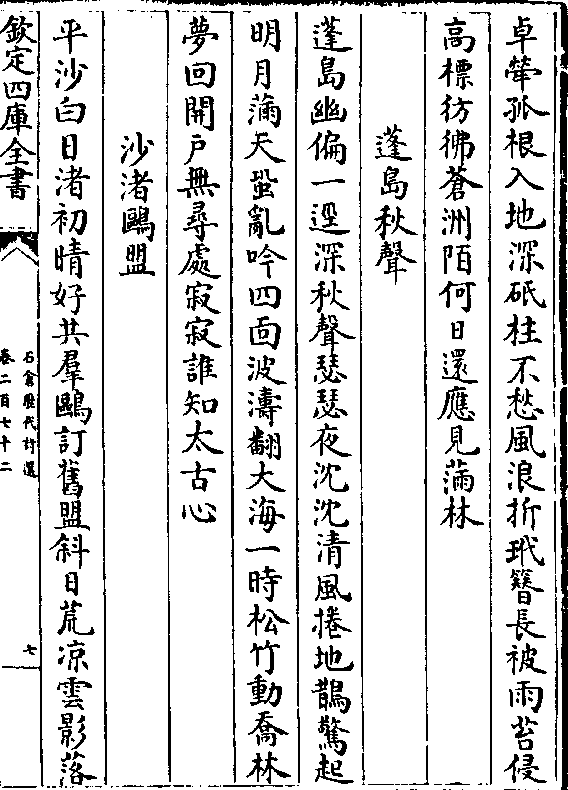 卓犖孤根入地深砥柱不愁風浪折玳簪長被雨苔侵
高標彷彿蒼洲陌何日還應見滿林
蓬島秋聲
蓬島幽偏一逕深秋聲瑟瑟夜沈沈清風捲地鵲驚起
明月滿天蛩亂吟四面波濤翻大海一時松竹動喬林
夢回開戶無尋處寂寂誰知太古心
沙渚鷗盟
平沙白日渚初晴好共羣鷗訂舊盟斜日荒凉雲影落
欽定四庫全書
石倉歷代詩選
卷二百七十二
七